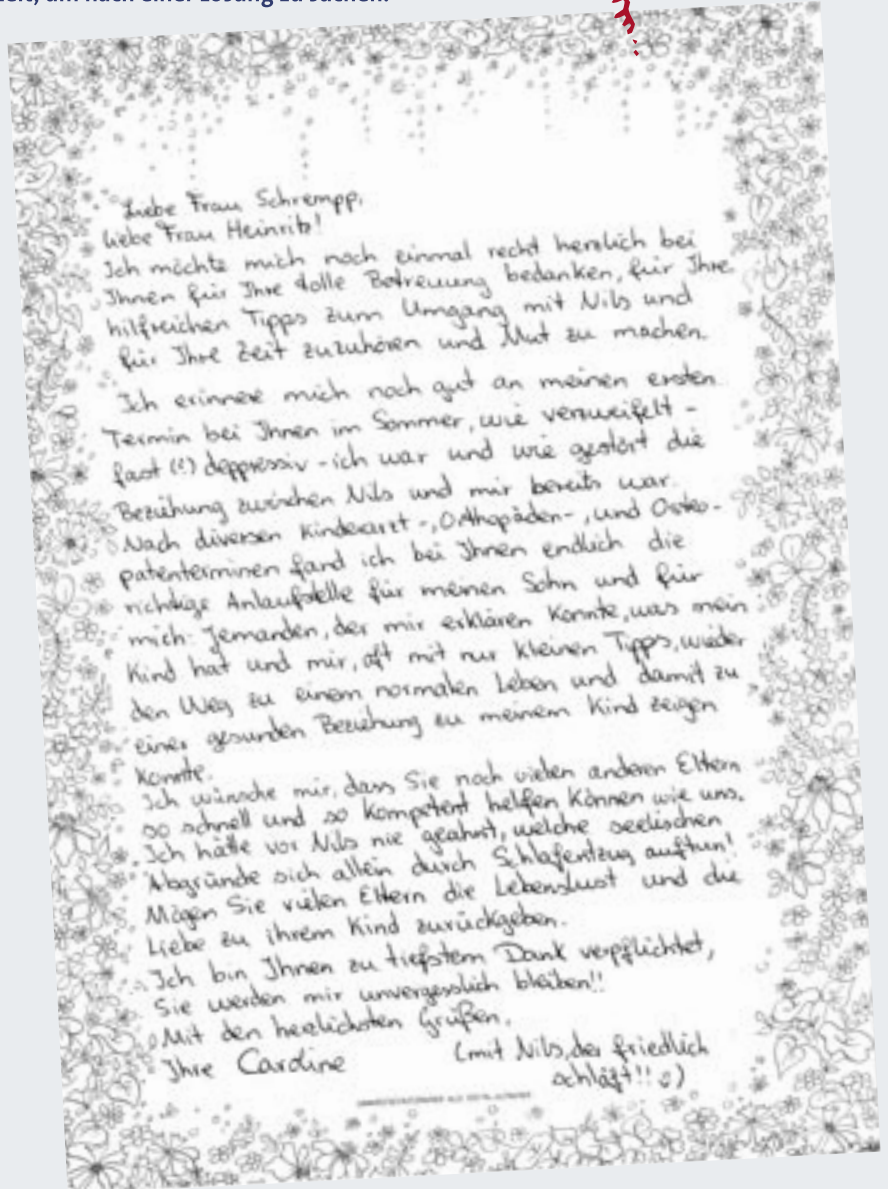 um nach einer Lösung zu suchen.
Liebe Frau Schrempp,
liebe Frau Heinritz!
Ich möchte mich noch einmal recht herzlich bei
Ihnen für Ihre tolle Betreuung bedanken, für Ihre
hilfreichen Tipps zum Umgang mit Nils und
für Ihre Zeit zuzuhören und Mut zu machen.
Ich erinnere mich noch gut an meinen ersten
Termin bei Ihnen im Sommer, wie verzweifelt -
fast (!) deppressiv - ich war und wie gestört die
Beziehung zwischen Nils und mir bereits war.
Nach diversen Kinderarzt-, Orthopäden-, und Osteo-
patenterminen fand ich bei Ihnen endlich die
richtige Anlaufstelle für meinen Sohn und für
mich: Jemanden, der mir erklären konnte, was mein
Kind hat und mir, oft mit nur kleinen Tipps, wieder
den Weg zu einem normalen Leben und damit zu
einer gesunden Beziehung zu meinem Kind zeigen
konnte.
Ich wünsche mir, dass Sie noch vielen anderen Eltern
so schnell und so kompetent helfen können wie uns.
Ich hätte vor Nils nie geahnt, welche seelischen
Abgründe sich allein durch Schlafentzug auftun!
Mögen Sie vielen Eltern die Lebenslust und die
Liebe zu ihrem Kind zurückgeben.
Ich bin Ihnen zu tiefstem Dank verpflichtet,
Sie werden mir unvergesslich bleiben!!
Mit den herzlichsten Grüßen,
Ihre Caroline
(mit Nils, der friedlich
schläft!! :)